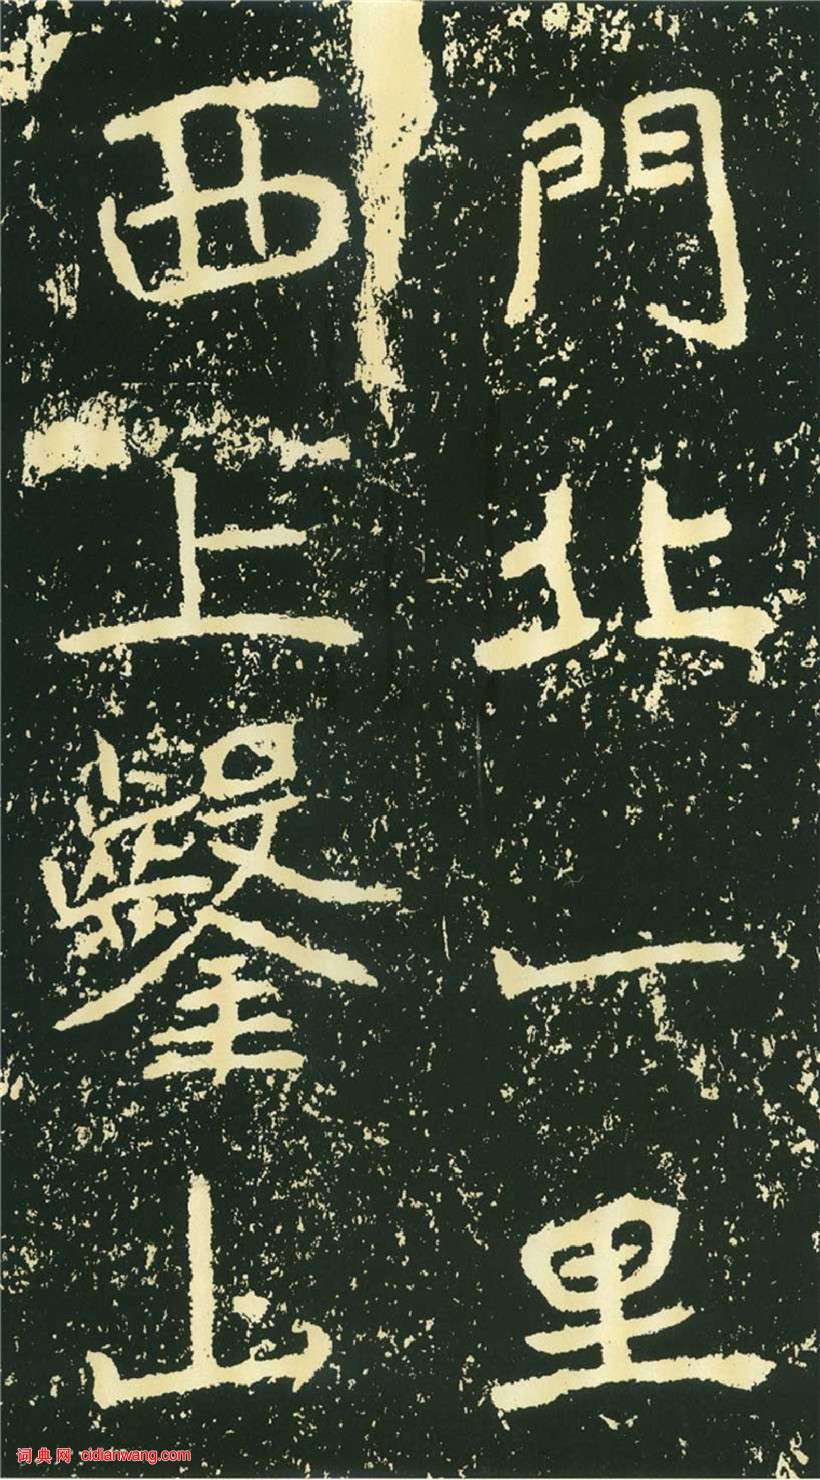 門北一里
西上鑿山
词典网 cidianwang.com